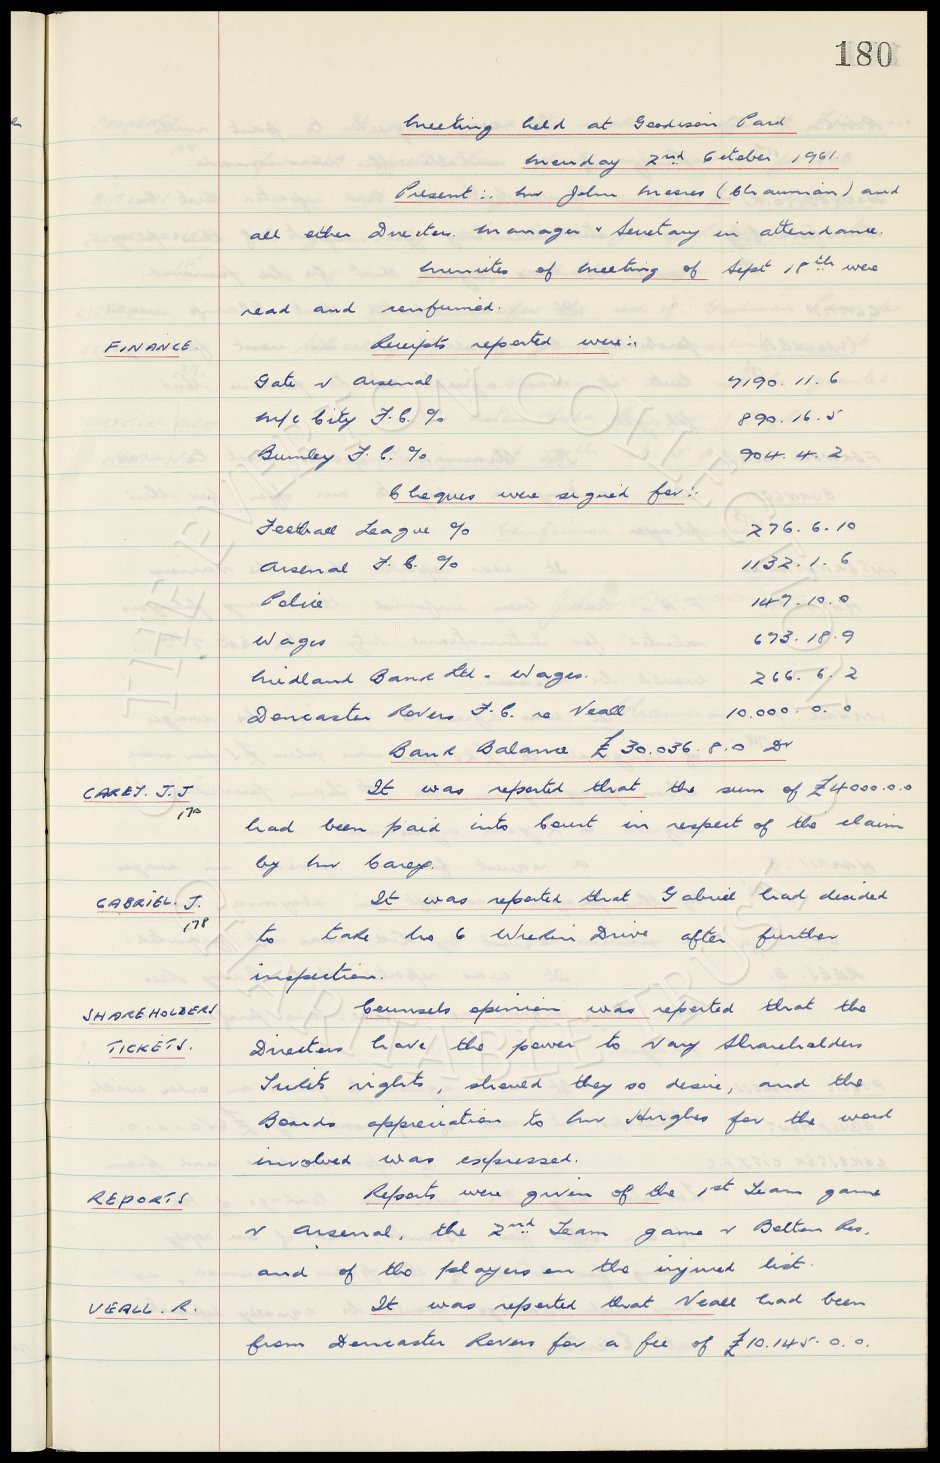 180
Meeting held at Goodison Park
Monday 2nd October 1961.
Present:. Mr John Moores (Chairman) and
all other Directors. Manager & Secretary in attendance.
Minutes of Meeting of Sept 18th were
read and confirmed.
FINANCE. Receipts reported were:.
Gate v Arsenal 7190. 11. 6
M/c City F.C. % 890. 16. 5
Burnley F.C. % 904. 4. 2
Cheques were signed for:.
Football League % 276. 6. 10
Arsenal F.C. % 1132. 1. 6
Police 147. 10. 0
Wages 673. 18. 9
Midland Bank Ltd - Wages. 266. 6. 2
Doncaster Rovers F.C. re Veall 10.000. 0. 0
Bank Balance £30.036. 8. 0 Dr
CAREY. J. J It was reported that the sum of £4000. 0. 0
170
had been paid into Court in respect of the claim
by Mr Carey.
GABRIEL. J. It was reported that Gabriel had decided
178
to take no 6 Wrekin Drive after further
inspection.
SHAREHOLDERS Counsels opinion was reported that the
TICKETS. Directors have the power to vary Shareholders
Tickets rights, should they so desire, and the
Boards appreciation to Mr Hughes for the work
involved was expressed.
REPORTS Reports were given of the 1st Team game
v Arsenal, the 2nd Team game v Bolton Res,
and of the players on the injured list.
VEALL. R. It was reported that Veall had been
from Doncaster Rovers for a fee of £10.145. 0. 0.
THE EVERTON COLLECTION
CHARITABLE TRUST